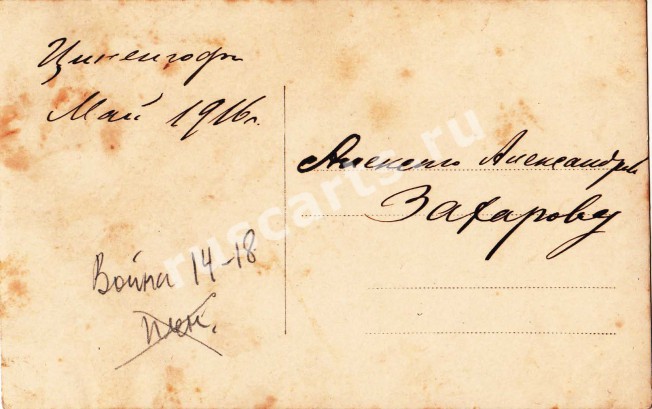 Циненгофъ
Май 1916 г.
Алексею Александров
Захарову
Война 14-18
плен.
ruscarts.ru